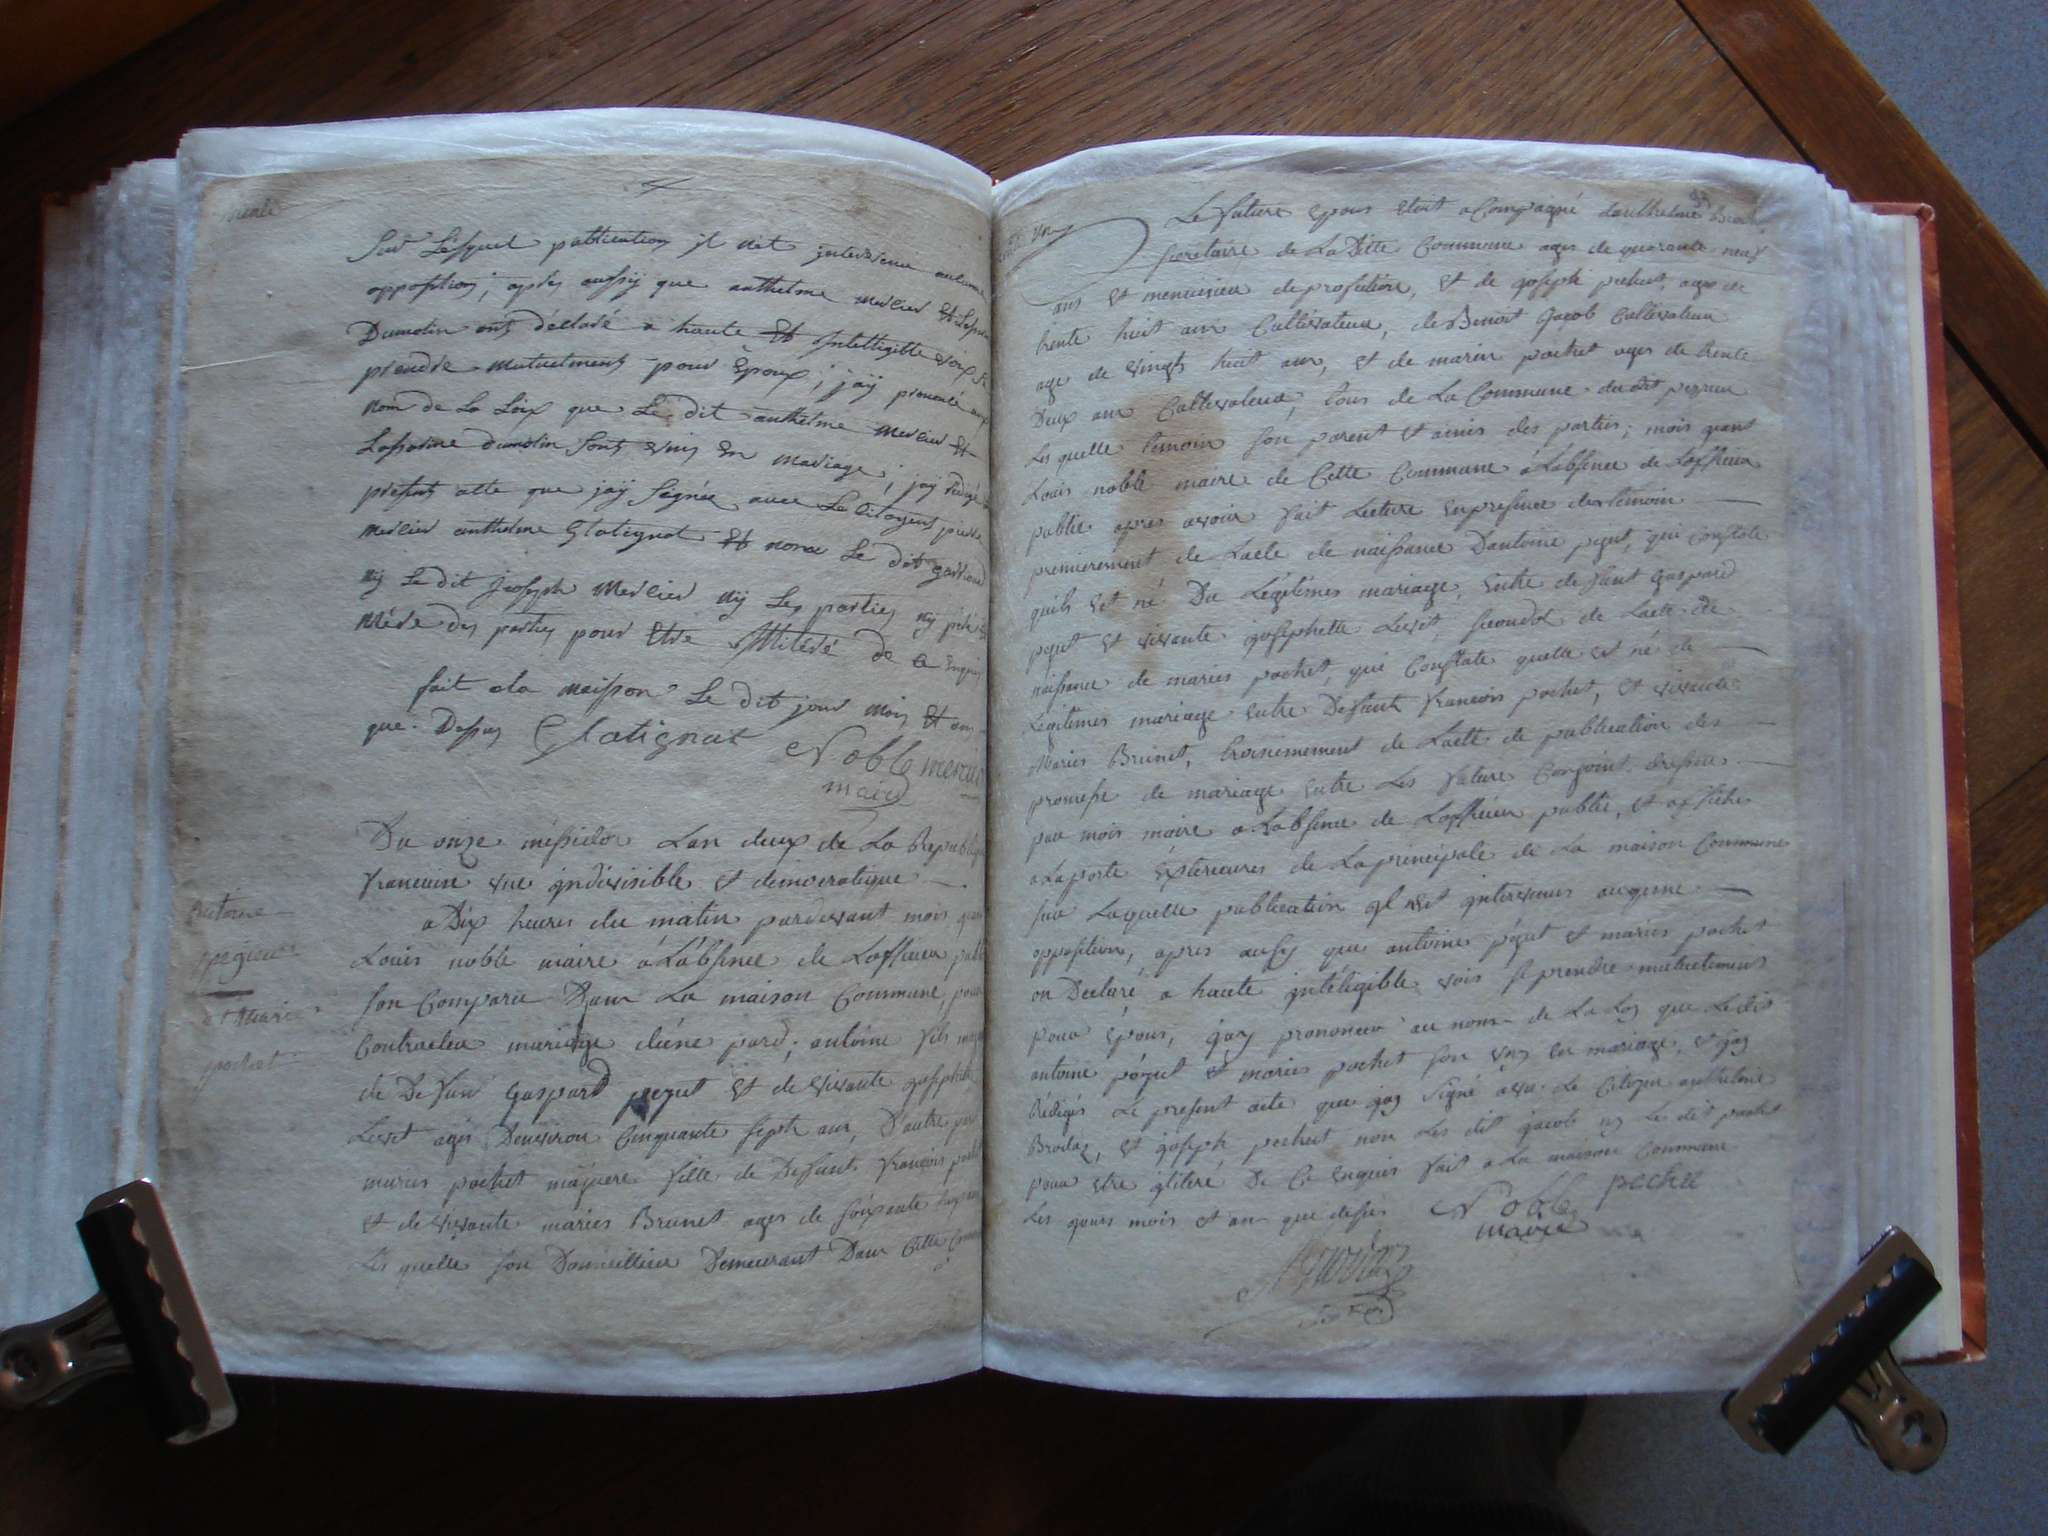 Sur Lesquel publication jl n'est intervenu aucune
opposition; apres aussy que anthelme mercier Et
Dumolin ont déclaré a haute Et Intelligible voix se
prendre mutuelment pour Epoux; jaÿ prononcé au
nom de La Loix que Le dit anthelme mercier Et
dumolin Sont vnis En mariage; jaÿ redigé
present atte que jaÿ Signée avec Le Citoyent pierre
mercier anthelme Glatignat Et non Le dit
nÿ Le dit Joseph Mercier nÿ Les parties nÿ
Mére des parties pour Etre Illiteré de Ce Enquis
fait a la maisson Le dit jour mois Et an
que. Dessus Glatignat Noble mercier
maire
Du onze méssidor Lan deux de La Republique
francaise vne jndivisible et démocratique
a Dix heures du matin pardevant mois
Louis noble maire á Lábsence de Lofficier public
son Comparu Dans La maison Commune, pour
Contracter mariage dúne pard; antoine fils
de Defun Gaspard pegut Et de vivante josephte
Levet agés Denviron Cinquante septh ans, Dautre
maries pochet majuere fille de Defunt françois
Et de vivante maries Brunet ages de
Les quelle son Domicillier Demeurant Dans Cette
antoine
et marie
pochet
Le future epous etoit acompagné danthelme
secretaire de La Ditte Commune ages de quarante neuf
ans et menuisier de profession, et de joseph pechut, age de
trente huit ans Cultivateur, de Benoit Jacob Cultivateur
age de vingt huit ans, et de marin pochet ages de trente
Deux ans Cultivateur, tous de La Commune du dit
Les quelle temoin son parent et amis des parties; mois
Louis noble maire de Cette Commune á Lábsence de Lofficier
public apres avoir fait Lecture en presence des temoin
premierement de Lacte de naissance Dantoine pegut, qui Constate
quils est né Du Légitimes mariage, entre defunt Gaspard
pegut et vivante josephette Levet, secondt de Lacte de
naissance de maries pochet, qui Constate quelle et né de
Légitimes mariage entre Defunt francois pochet, et vivante
Maries Brunet, troisiemement de Lacte de publication des
promesse de mariage entre Les future Conjoint dressées
par mois maire a Labsence de Lofficier public, et affiches
a La porte Extérieures de La principale de La maison Commune
sur Laquelle publication jl nest intervenus augune
opposition, apres aussy que antoine pégut et maries pochet
on Declaré a haute intéligible vois se prendre mutuelement
pour épous, jay prononcer au nom de La Loy que Le dit
antoine pégut et maries pochet son vny en mariage, et jay
Rédigés Le present acte que jay signé avec Le Citoyen anthelme
Brodaz, et joseph pechut non Les dit jacob ny Le dit pochet
pour etre jliteré De Ce enquis fait a La maison Commune
Les jours mois et an que dessus Noble pechu
maire